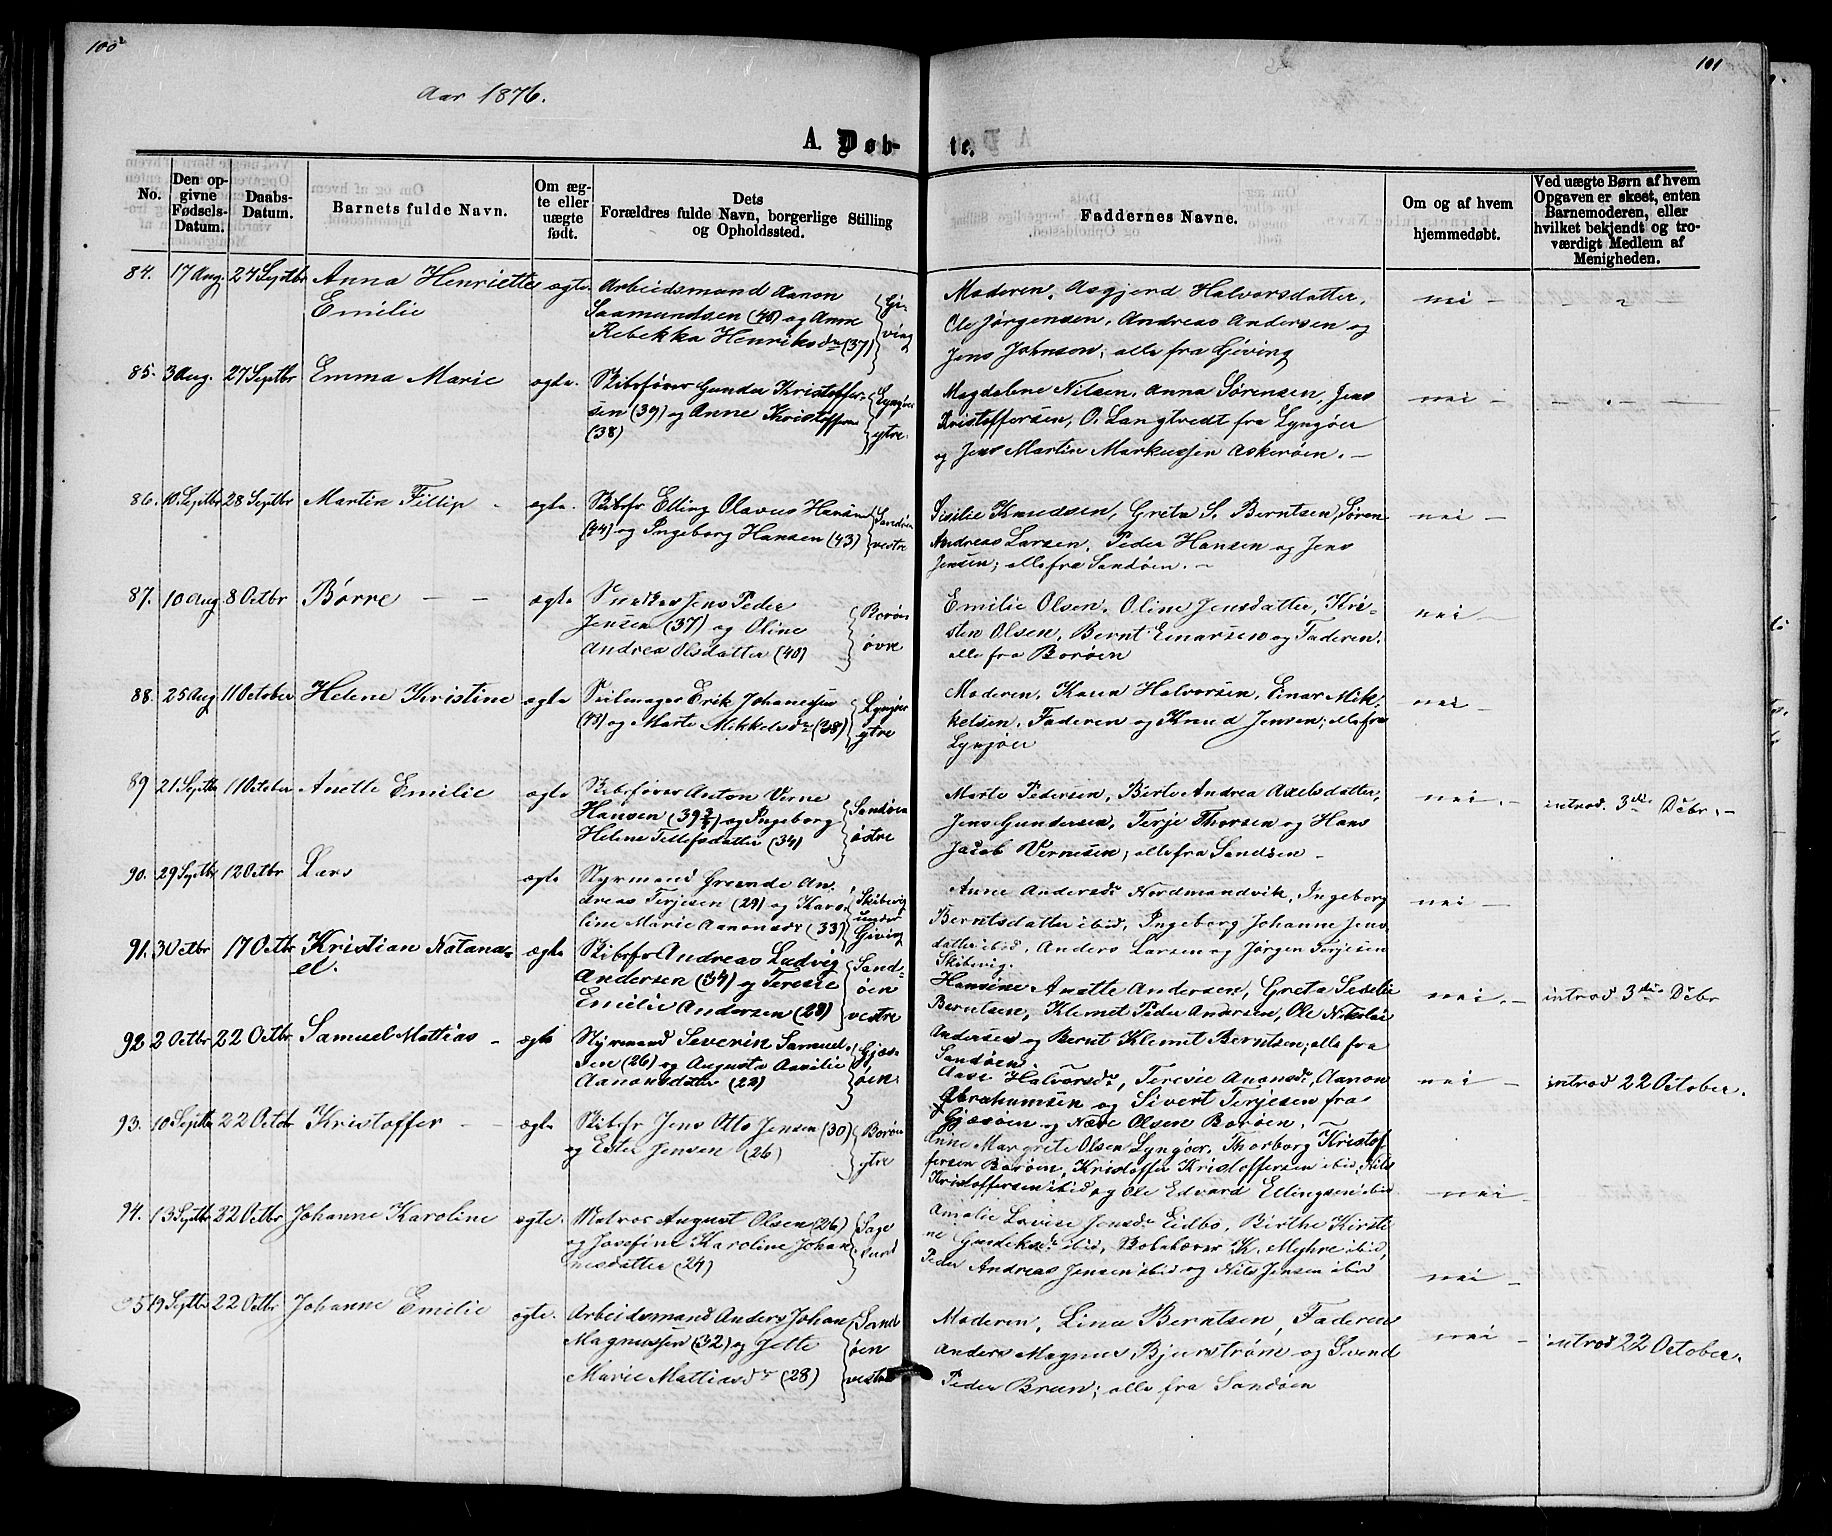 100
101
Aar 1876.
A. Døb-
te.
No.
Den op-
givne
Fødsels-
Datum.
Daabs-
Datum.
Barnets fulde Navn.
Om æg-
te eller
uægte
født.
Dets
Forældres fulde Navn, borgerlige Stilling
og Opholdssted.
Faddernes Navne.
Om og af hvem
hjemmedøbt.
Ved uægte Børn af hvem
Opgaven er skeet, enten
Barnemoderen, eller
hvilket bekjendt og tro-
værdigt Medlem af
Menigheden.
84. 17 Aug. 27 Septbr Anna Henriette
Emilie
ægte
Arbeidsmand Aanon
Saamundsen (40) og Anne
Rebekka Henriksdr (37)
Gi-
ving
Moderen, Asgjerd Halvorsdatter,
Ole Jørgensen, Andreas Andersen og
Jens Johnson; alle fra Giving
nei –
85. 3 Aug. 27 Septbr Emma Marie
ægte.
Skibsfører Gunder Kristoffer-
sen (39) og Anne Kristoffersen
(38)
Lyngøer
ytre.
Magdalene Nilsen, Anna Sørensen, Jens
Kristoffersen, O. Langtvedt fra Lyngøer
og Jens Martin Markussen Askerøen. –
nei –
86. 10 Septbr 28 Septbr Martin Fillip
ægte.
Skibsfr Elling Olavus Hansen
(44) og Ingeborg Hansen (43)
Sandøen
vestre
Sisilie Knudsen, Greta S. Berntsen, Søren
Andreas Larsen, Peder Hansen og Jens
Jensen; alle fra Sandøen. –
nei –
87. 10 Aug 8 Octbr Børre – –
ægte
Snedker Jens Peder
Jensen (37) og Oline
Andrea Olsdatter (40)
Borøen
øvre
Emilie Olsen, Oline Jensdatter, Kri-
sten Olsen, Bernt Einarsen og Faderen,
alle fra Borøen
nei –
88. 25 Aug 11 October Helene Kristine
ægte
Seilmager Erik Johanssen
(43) og Marte Mikkelsdr (38)
Lyngøer
ytre
Moderen, Karen Halvorsen, Einar Mik-
kelsen, Faderen og Knud Jensen; alle fra
Lyngøer
nei –
89 21 Septbr 11 October Anette Emilie
ægte
Skibsfører Anton Verne
Hansen (39 3/4) og Ingeborg
Helene Tellefsdatter (34)
Sandøen
østre
Marte Pedersen, Berte Andrea Axelsdatter,
Jens Gundersen, Terje Thorsen og Hans
Jacob Vernesen; alle fra Sandøen –
nei. –
introd. 3die Debr. –
90. 29 Septbr 12 Octbr Lars
ægte
Styrmand Greende An-
dreas Terjesen (29) og Karo-
line Marie Aanonsdr (33)
Skibevig
under
Giving
Anne Andersdr Nordmandvik, Ingeborg
Berntsdatter ibid, Ingeborg Johanne Jens-
datter ibid, Anders Larsen og Jørgen Terjesen
Skibevig.
nei –
91. 3 Octbr 17 Octbr Kristian Natana-
el.
ægte
Skibsfr Andreas Ludvig
Andersen (34) og Teresie
Emilie Andersen (28)
Sand-
øen
vestre
Hansine Anette Andersen, Greta Sesilie
Berntsen, Klemet Peder Andersen, Ole Nikolai
Andersen og Bernt Klemet Berntsen; alle fra
Sandøen. –
nei. –
introd 3die Debr
92 2 Octbr 22 Octbr Samuel Mattias –
ægte
Styrmand Severin Samuel-
sen (26) og Augusta Aasilie
Aanonsdatter (22)
Gjæs-
øen
Aase Halvorsdr, Teresie Anonsdr, Aanon
Abrahamsen og Sivert Terjesen fra
Gjæsøen og Næve Olsen Borøen. –
nei –
introd 22 October.
93. 10 Septbr 22 Octbr Kristoffer – –
ægte
Skibsfr Jens Otto Jensen (30)
og Ester Jensen (26)
Borøen
ytre
Anne Margrete Olsen Lyngøer, Thorborg Kristof-
fersen Borøen, Kristoffer Kristoffersen ibid, Nils
Kristoffersen ibid og Ole Edvard Ellingsen ibid
nei –
94. 13 Septbr 22 Octbr Johanne Karoline
ægte.
Matros August Olsen (26)
og Josefine Karoline Johan
nesdatter (24)
Sage
sund
Amalie Lovise Jensdr Eidbo, Birthe Kirsti-
ne Gundeksdr ibid, K. Myhre ibid,
Peder Andreas Jensen ibid og Nils Jensen ibid
nei –
95 19 Septbr 22 Octbr Johanne Emilie
ægte.
Arbeidsmand Anders Johan
Magnussen (32) og Jette
Marie Mattiasdr (28)
Sand
øen
vestre
Moderen, Lina Berntsen, Faderen
Anders Magnus Bjurstrøm og Svend
Peder Bruun; alle fra Sandøen
nei –
introd 22 October.